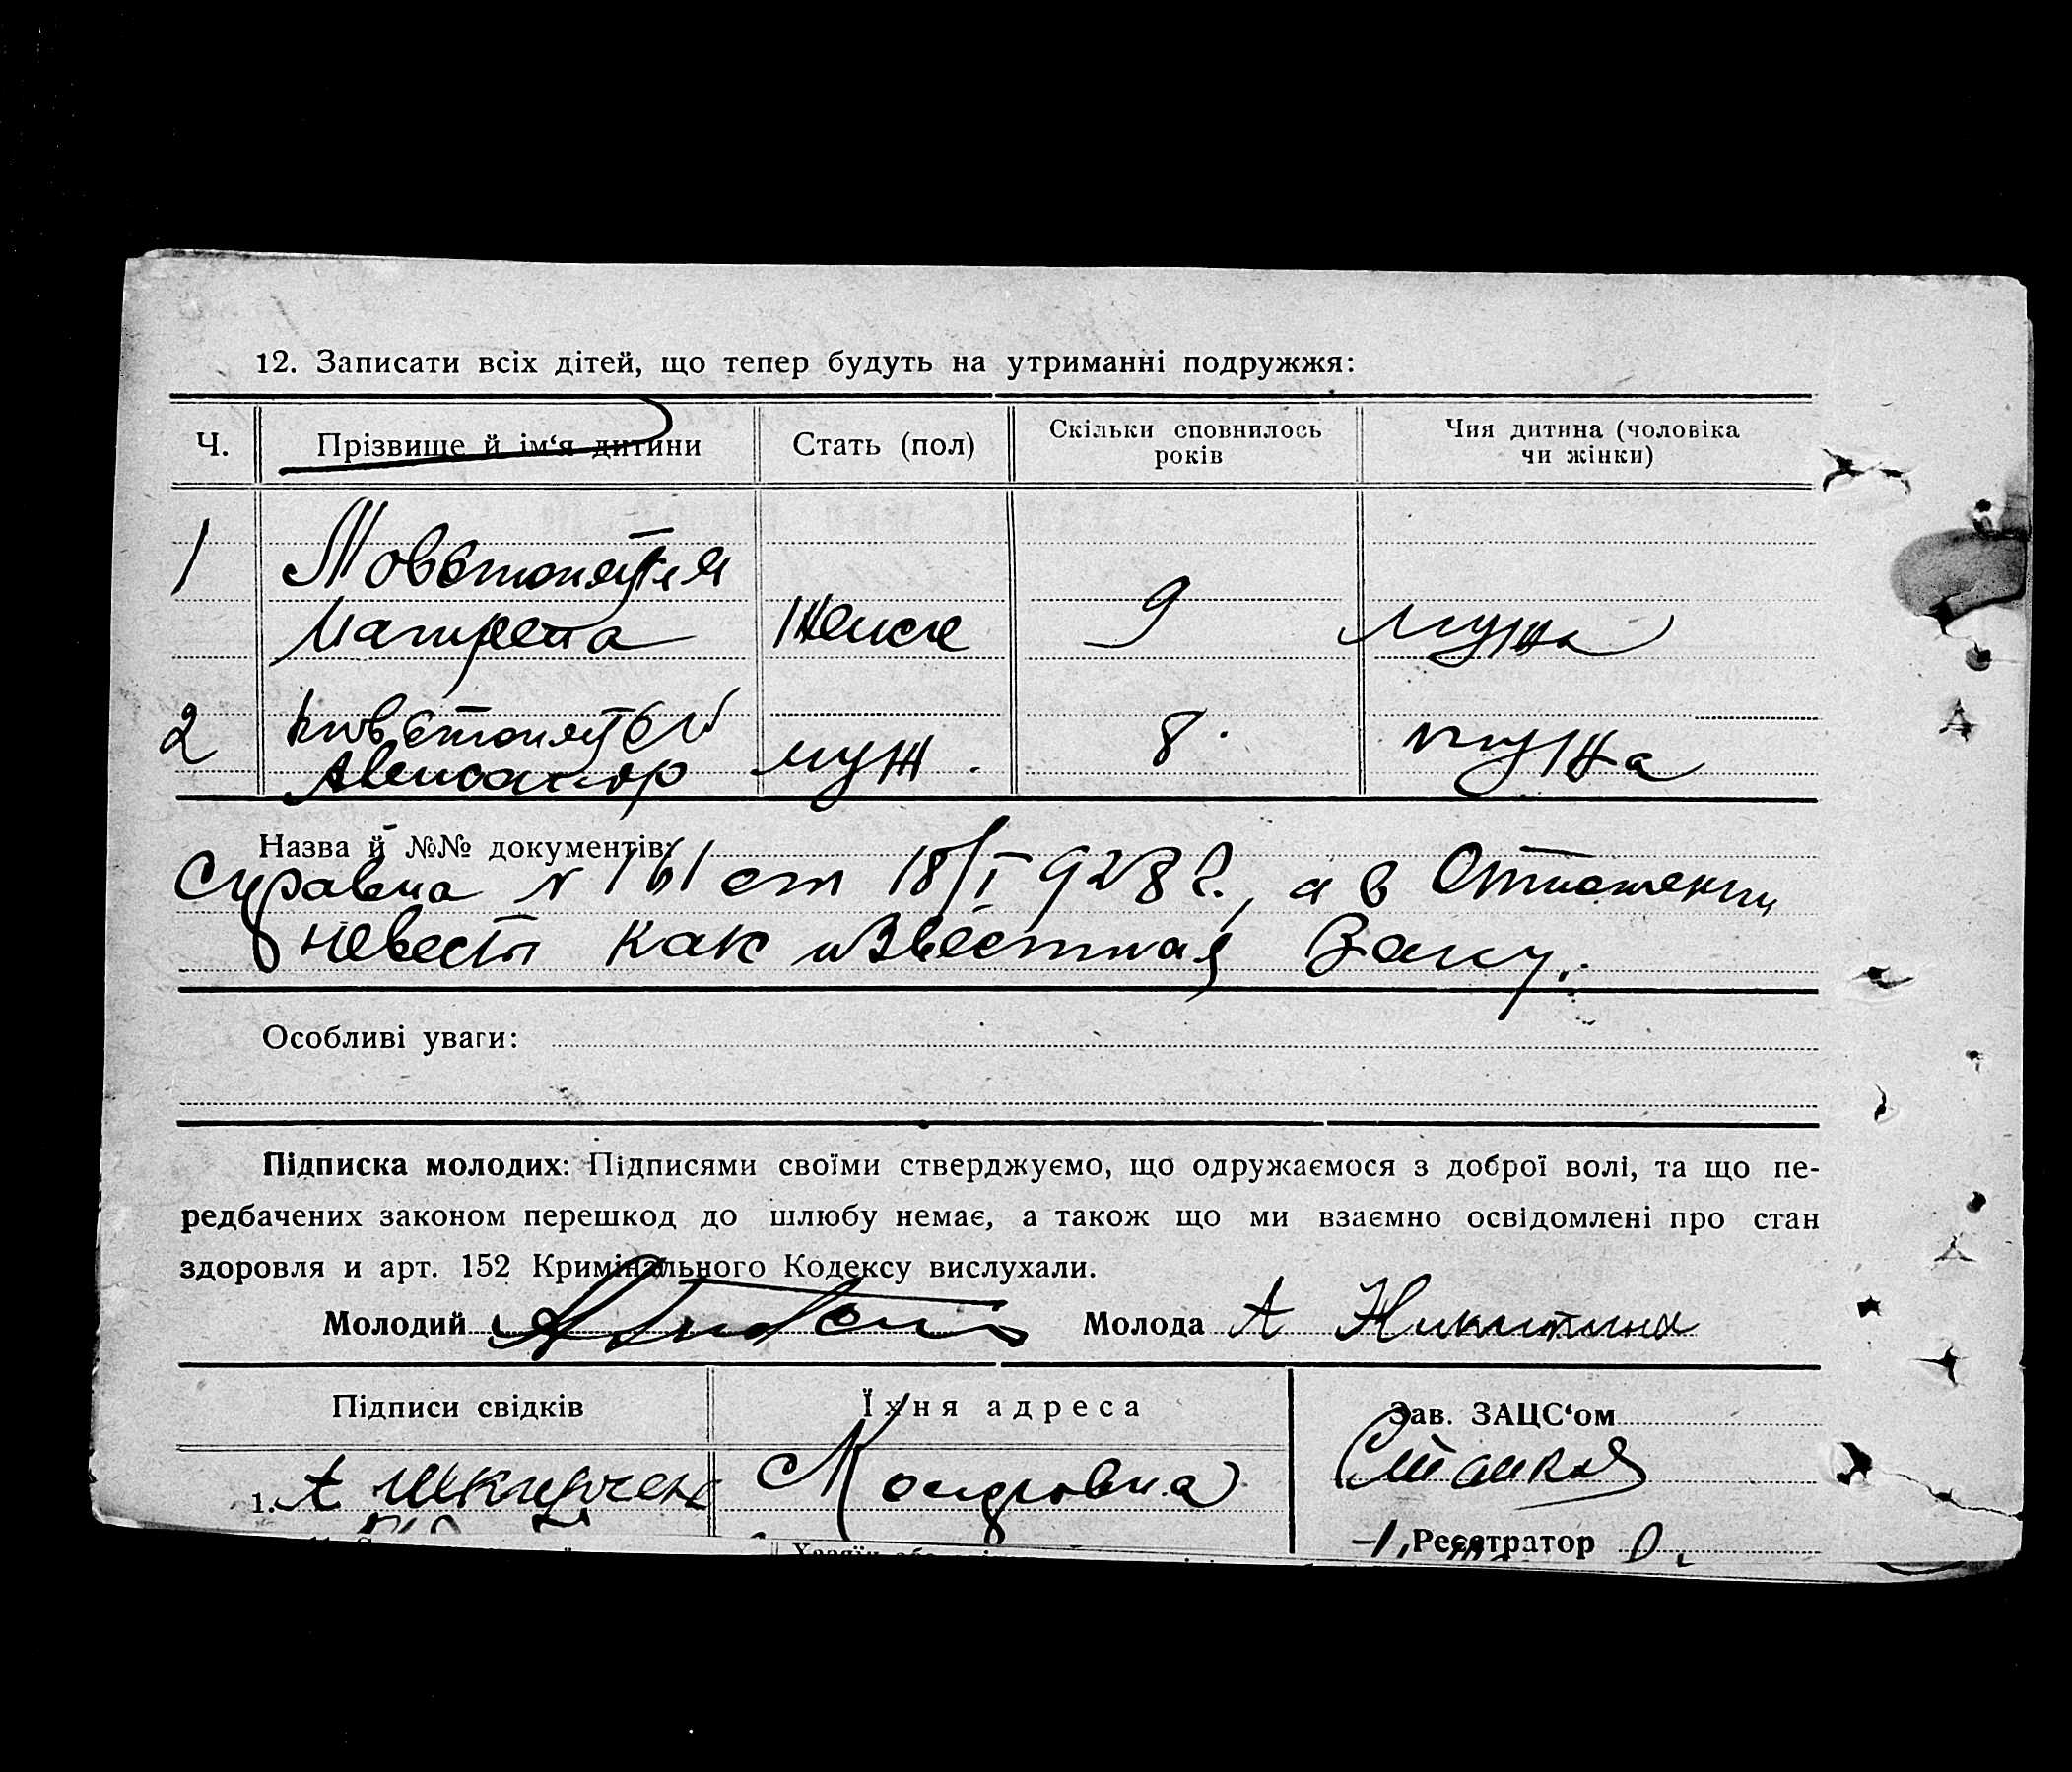 12. Записати всіх дітей, що тепер будуть на утриманні подружжя:
Ч. Прізвище й ім‘я дитини Стать (пол) Скільки сповнилось років Чия дитина (чоловіка чи жінки)
1
Матрена Женск 9 мужа
2
Александр муж. 8. мужа
Назва й №№ документів:
Справка № 161 от 18/I 928 г., а в Отношении
невесты как известная Загсу.
Особливі уваги:
Підписка молодих: Підписями своїми стверджуємо, що одружаємося з доброї волі, та що пе-
редбачених законом перешкод до шлюбу немає, а також що ми взаємно освідомлені про стан
здоровля и арт. 152 Кримінального Кодексу вислухали.
Молодий Молода А Никитина
Підписи свідків Їхня адреса Зав. ЗАЦС‘ом
1. А
Реєстратор